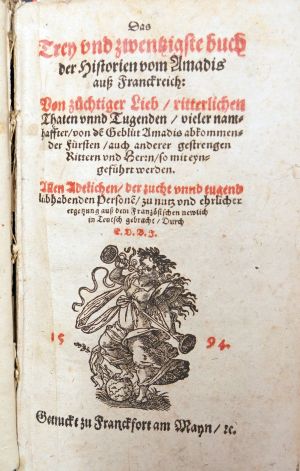 Das
Trey vnd zwentzigste buch
der Historien vom Amadis
auß Franckreich:
Von züchtiger Lieb / ritterlichen
Thaten vnnd Tugenden / vieler nam-
haffter / von dē Geblüt Amadis abkommen-
der Fürsten / auch anderer gestrengen
Rittern vnd Herrn / so mit eyn-
geführt werden.
Allen Adelichen / der zucht vnnd tugend
liebhabenden Personē / zu nutz vnd ehrlicher
ergetzung auß dem Französischen newlich
in Teutsch gebracht / Durch
15 94.
Getruckt zu Franckfort am Mayn / ꝛc.